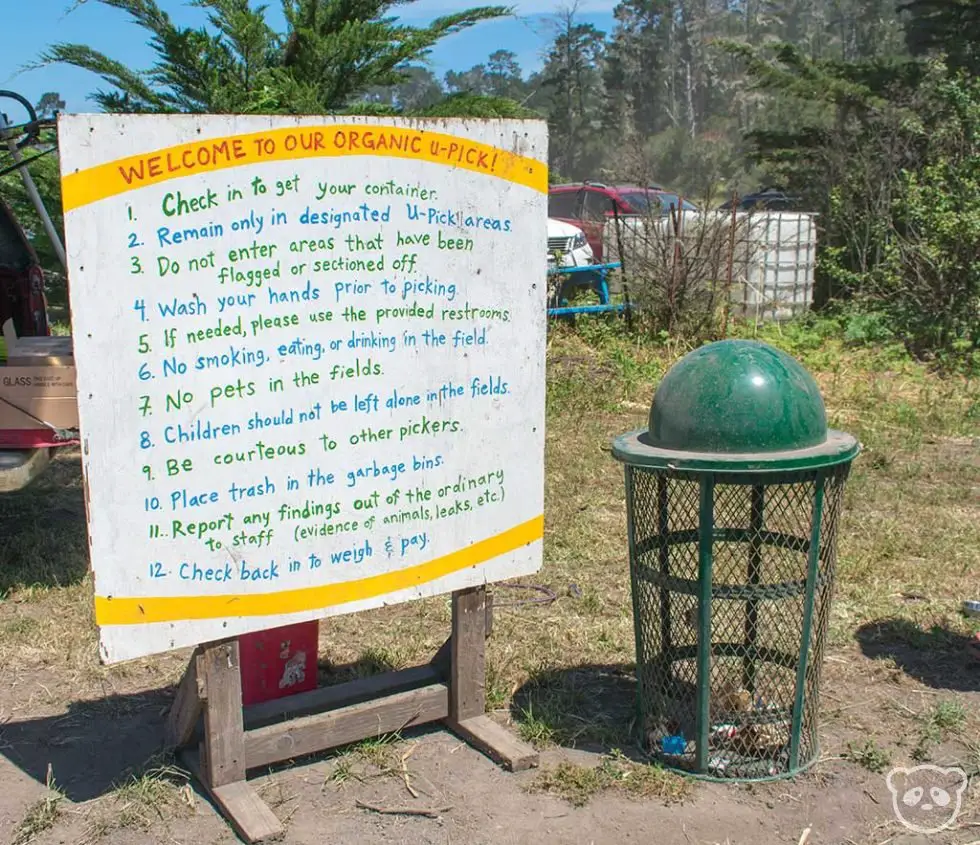 WELCOME TO OUR ORGANIC U-PICK!
1. Check in to get your container.
2. Remain only in designated U-Pick areas.
3. Do not enter areas that have been
flagged or sectioned off.
4. Wash your hands prior to picking.
5. If needed, please use the provided restrooms.
6. No smoking, eating, or drinking in the field.
7. No pets in the fields.
8. Children should not be left alone in the fields.
9. Be courteous to other pickers.
10. Place trash in the garbage bins.
11. Report any findings out of the ordinary
to staff (evidence of animals, leaks, etc.)
12. Check back in to weigh & pay.
GLASS